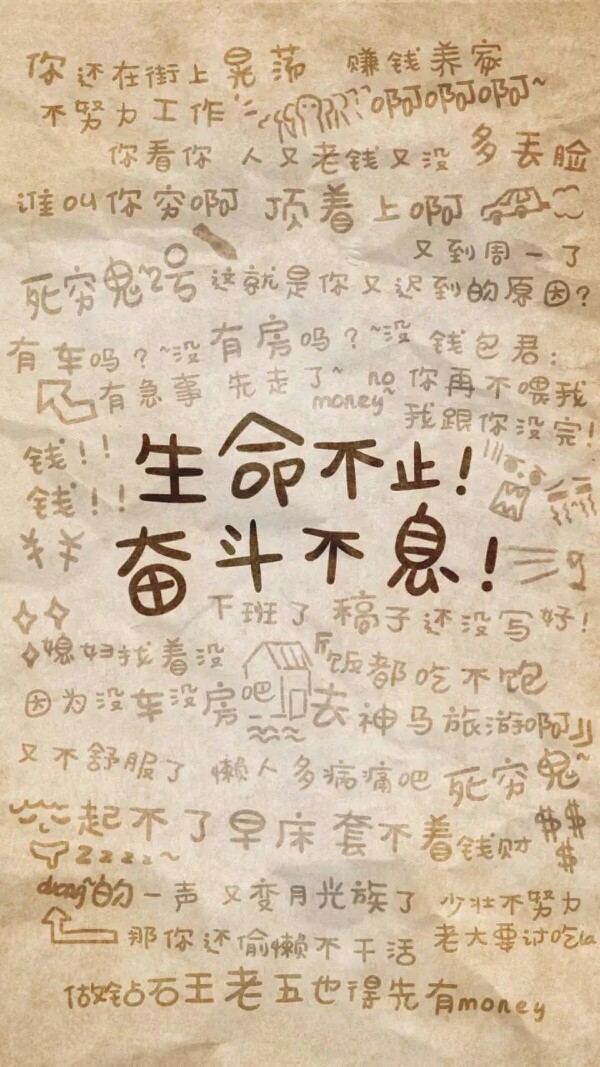 你还在街上晃荡 赚钱养家
不努力工作 啊啊啊~
你看你 人又老钱又没 多丢脸
谁叫你穷啊 顶着上啊
又到周一了
死穷鬼~2号 这就是你又迟到的原因?
有车吗?~没 有房吗?~没 钱包君:
有急事 先走了~ no money~ 你再不喂我
我跟你没完!
钱!!
钱!!
生命不止!
奋斗不息!
下班了 稿子还没写好!
媳妇找着没 饭都吃不饱
因为没车没房吧 去神马旅游啊
又不舒服了 懒人多病痛吧 死穷鬼~
起不了早床套不着钱财 $$$
zzzz~
duang的一声 又变月光族了 少壮不努力
那你还偷懒不干活 老大要讨吃la
做钻石王老五也得先有money